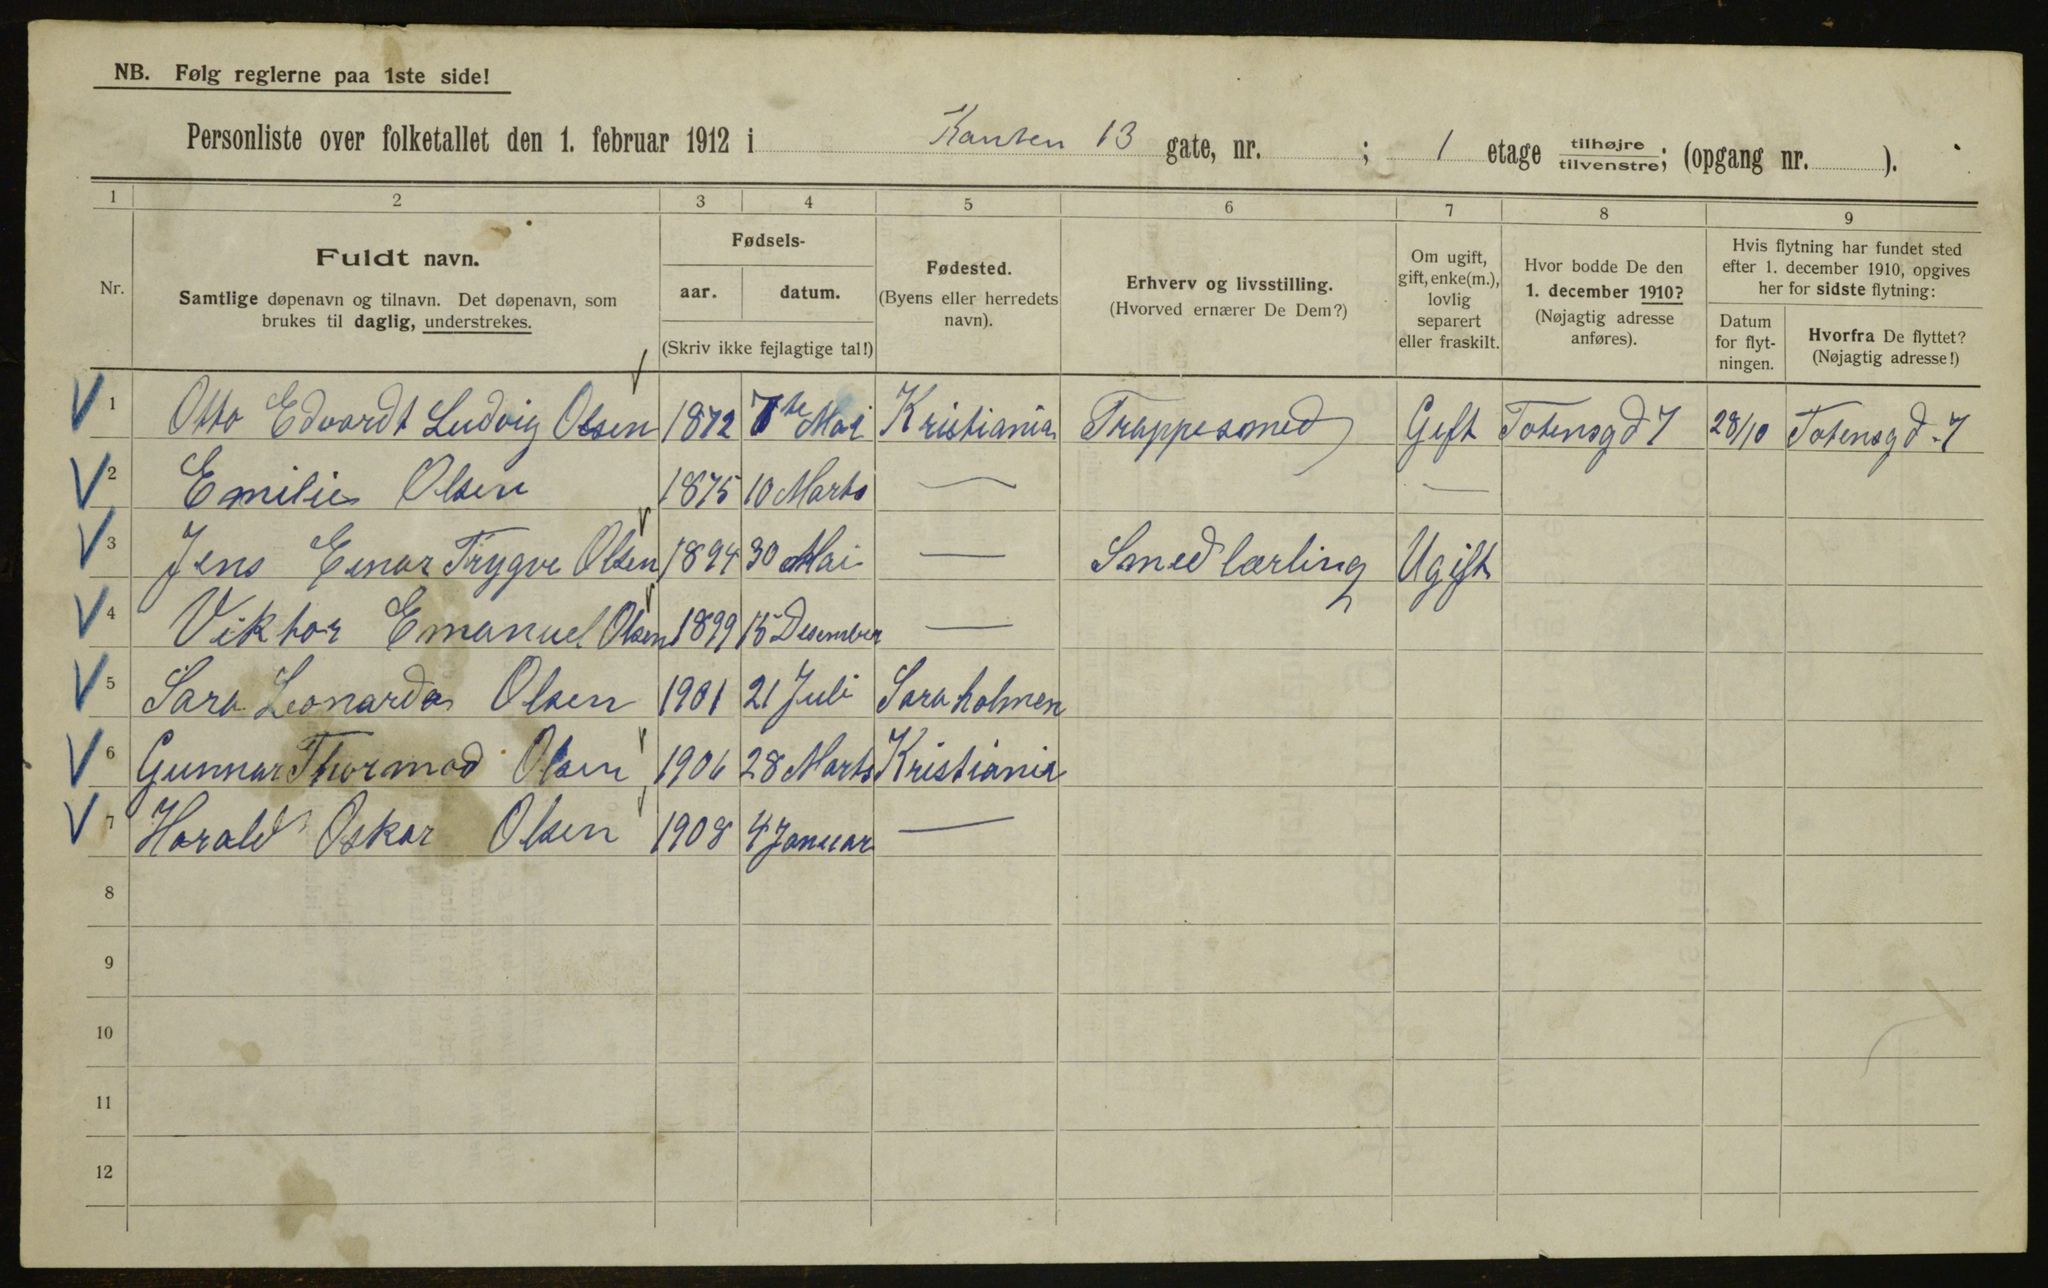 NB. Følg reglerne paa 1ste side!
Personliste over folketallet den 1. februar 1912 i Kanten 13 gate, nr. ; 1 etage tilhøjre/tilvenstre; (opgang nr. ).
1 2 3 4 5 6 7 8 9
Nr.
Fuldt navn.
Samtlige døpenavn og tilnavn. Det døpenavn, som
brukes til daglig, understrekes.
Fødsels-
aar. datum.
(Skriv ikke fejlagtige tal!)
Fødested.
(Byens eller herredets
navn).
Erhverv og livsstilling.
(Hvorved ernærer De Dem?)
Om ugift,
gift, enke(m.),
lovlig
separert
eller fraskilt.
Hvor bodde De den
1. december 1910?
(Nøjagtig adresse
anføres).
Hvis flytning har fundet sted
efter 1. december 1910, opgives
her for sidste flytning:
Datum
for flyt-
ningen.
Hvorfra De flyttet?
(Nøjagtig adresse!)
1 Otto Edvardt Ludvig Olsen 1872 7te Mai Kristiania Trappesmed Gift Totensgd 7 28/10 Totensgd. 7
2 Emilie Olsen 1875 10 Marts — —
3 Jens Einar Trygve Olsen 1894 30 Mai — Smedlærling Ugift
4 Viktor Emanuel Olsen 1899 15 Desember —
5 Sara Leonarda Olsen 1901 21 Juli Saraholmen
6 Gunnar Thormod Olsen 1906 28 Marts Kristiania
7 Harald Oskar Olsen 1908 4 Januar —
8
9
10
11
12